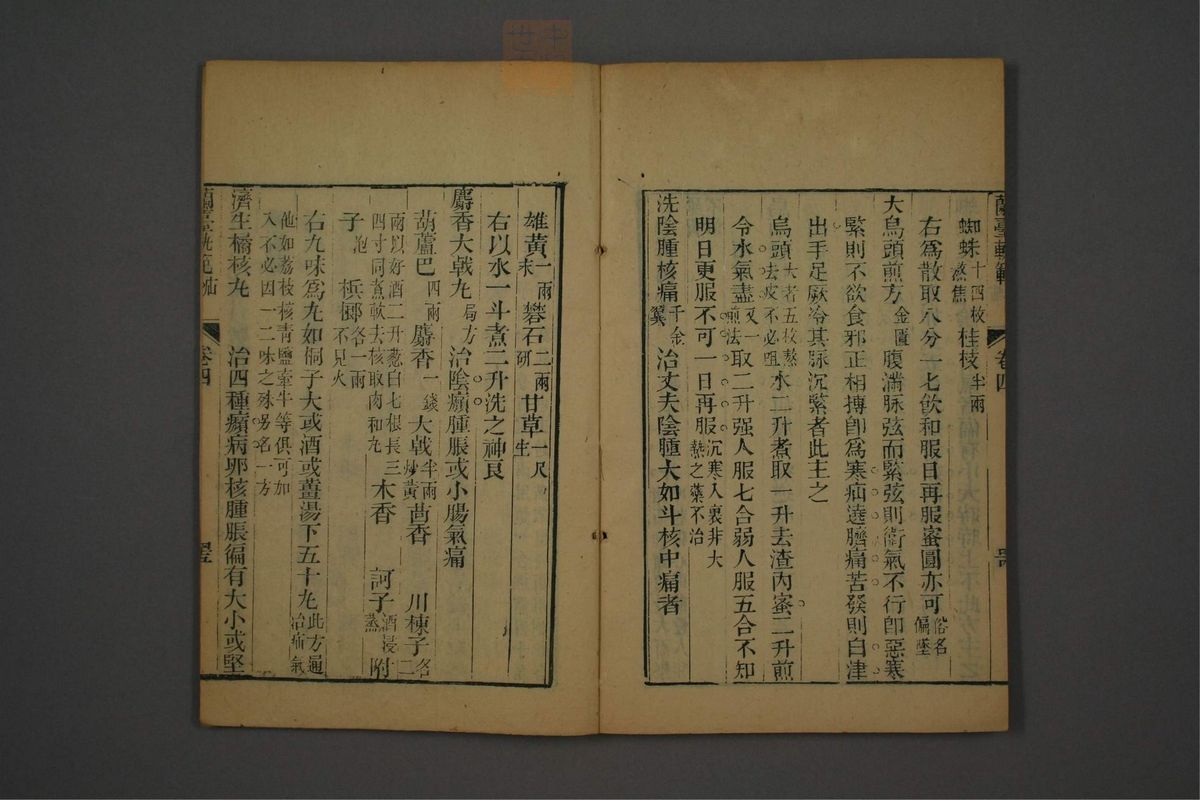 蘭臺軌範
卷四
蜘蛛十四枚熬焦 桂枝半兩
右爲散取八分一匕飮和服日再服蜜圓亦可俗名偏墜
大烏頭煎方金匱 腹滿脉弦而緊弦則衛氣不行卽惡寒
緊則不欲食邪正相搏卽爲寒疝遶臍痛苦發則白津
出手足厥冷其脉沉緊者此主之
烏頭大者五枚熬去皮不必咀 水二升煮取一升去渣內蜜二升煎
令水氣盡又一煎法 取二升强人服七合弱人服五合不知
明日更服不可一日再服沉寒入裏非大熱之藥不治
洗陰腫核痛千金翼 治丈夫陰腫大如斗核中痛者
雄黃一兩末 礬石二兩研 甘草一尺生
右以水一斗煮二升洗之神良
麝香大戟丸局方 治陰㿗腫脹或小腸氣痛
葫蘆巴四兩 麝香一錢 大戟半兩炒黃 茴香 川棟子各二
兩以好酒二升葱白七根長三四寸同煮軟去核取肉和丸 木香 訶子酒浸蒸 附
子泡 檳榔各一兩不見火
右九味爲丸如桐子大或酒或薑湯下五十丸此方通治疝氣
他如荔枝核靑鹽牽牛等俱可加入不必因一二味之殊另名一方
濟生橘核丸 治四種㿗病卵核腫脹偏有大小或堅
卷四